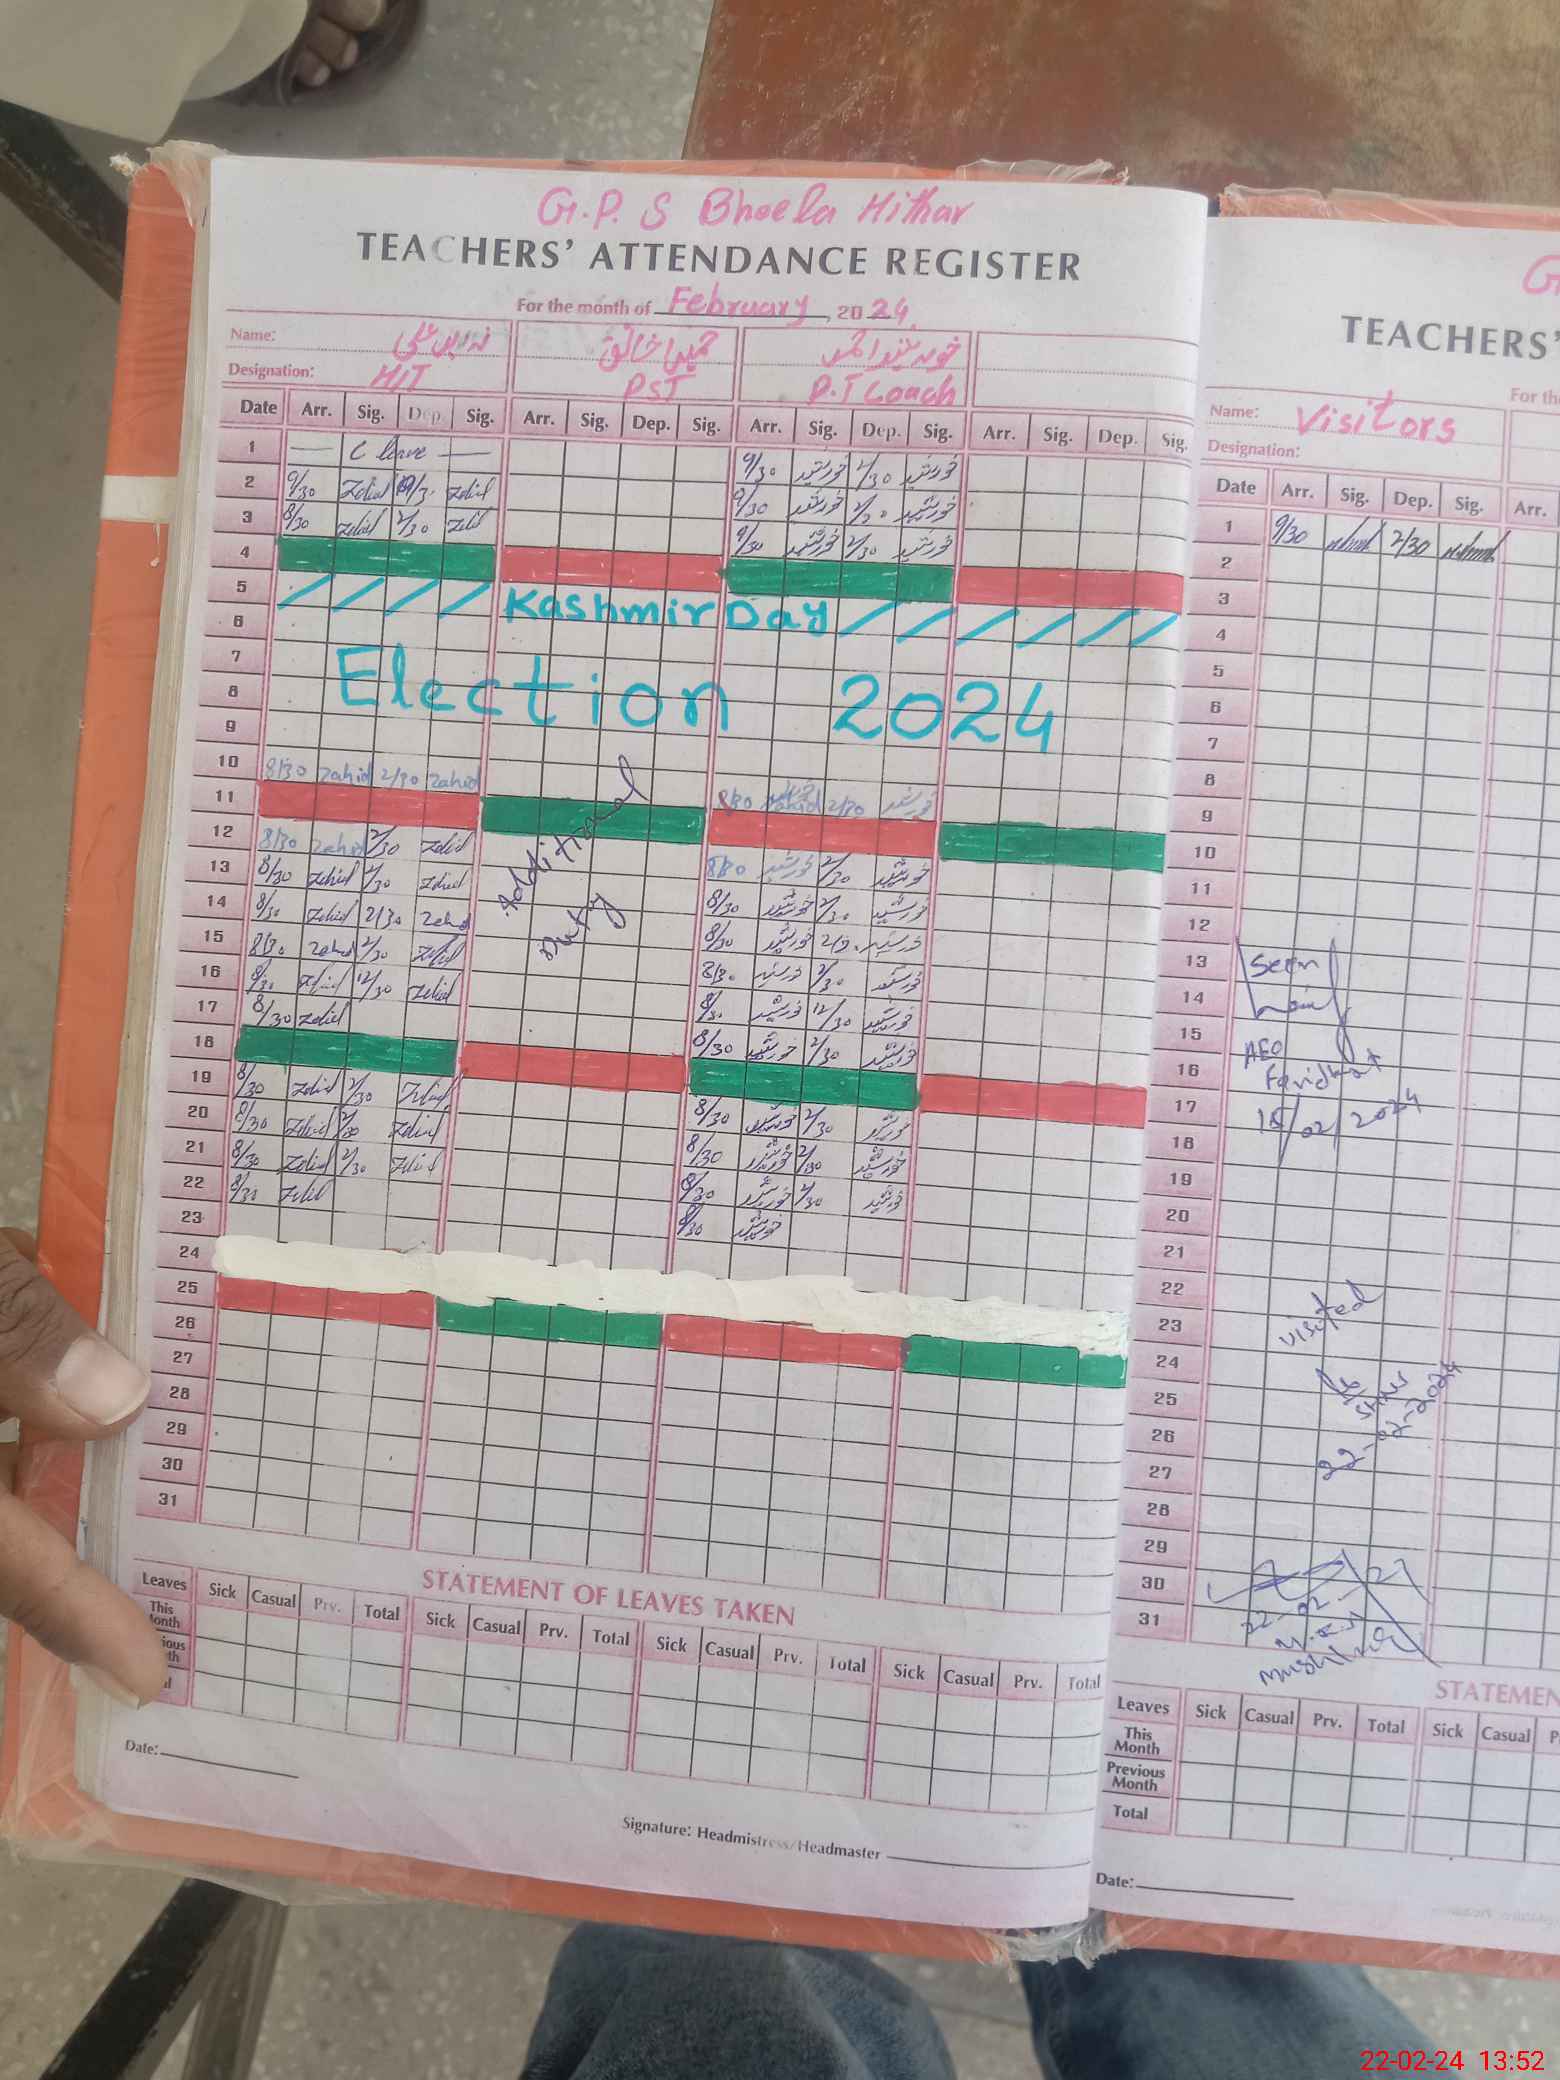 G.P.S Bheela Hithar
TEACHERS' ATTENDANCE REGISTER
For the month of February, 2024
Name: زاہد علی خورشید احمد
Designation: HIT PST P.T Coach
Date Arr. Sig. Dep. Sig. Arr. Sig. Dep. Sig. Arr. Sig. Dep. Sig. Arr. Sig. Dep. Sig.
1 — C leave — 9/30 خورشید 2/30 خورشید
2 9/30 Zahid Zahid 9/30 خورشید خورشید
3 8/30 Zahid 2/30 Zahid 9/30 خورشید 2/30 خورشید
4
5 Kashmir Day
6
7
8 Election 2024
9
10 8/30 Zahid 2/30 Zahid 8/30 2/30 خورشید
11
12 8/30 Zahid 2/30 Zahid 8/30 خورشید 2/30 خورشید
13 8/30 Zahid 2/30 Zahid 8/30 خورشید 2/30 خورشید
14 8/30 Zahid 2/30 Zahid 8/30 خورشید خورشید
15 8/30 Zahid 2/30 Zahid 8/30 خورشید 2/30 خورشید
16 8/30 Zahid 12/30 Zahid 8/30 خورشید 12/30 خورشید
17 8/30 Zahid 8/30 خورشید 2/30 خورشید
Additional
Duty
18
19 8/30 Zahid 2/30 Zahid 8/30 خورشید 2/30 خورشید
20 8/30 Zahid 2/30 Zahid 8/30 خورشید 2/30 خورشید
21 8/30 Zahid 2/30 Zahid 8/30 خورشید 2/30 خورشید
22 8/30 Zahid 8/30 خورشید
23
24
25
26
27
28
29
30
31
STATEMENT OF LEAVES TAKEN
Leaves Sick Casual Prv. Total Sick Casual Prv. Total Sick Casual Prv. Total Sick Casual Prv. Total
This
Month
Date:
Signature: Headmistress/Headmaster
G
TEACHERS'
For the
Name: Visitors
Designation:
Date Arr. Sig. Dep. Sig. Arr.
1 9/30 2/30
2
3
4
5
6
7
8
9
10
11
12
13 Seen
14
15 AEO
16 Faridkot
17 /02/2024
18
19
20
21
22
23 visited
24
25
26 22-02-2024
27
28
29
30
31 22-02-
STATEMEN
Leaves Sick Casual Prv. Total Sick Casual P
This
Month
Previous
Month
Total
Date:
22-02-24 13:52